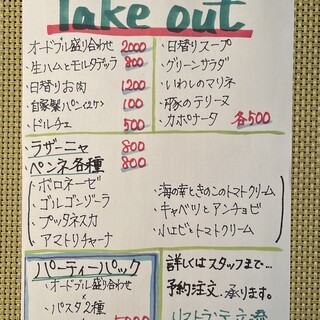 Take out
オードブル盛り合わせ 2000
・生ハムとモルタデッラ 800
・日替りお肉 1200
・自家製パン(2ケ) 100
・ドルチェ 500
・日替りスープ
・グリーンサラダ
・いわしのマリネ
・豚のテリーヌ
・カポナータ 各500
・ラザーニャ 800
・ペンネ各種 800
・ボロネーゼ
・ゴルゴンゾーラ
・プッタネスカ
・アマトリチャーナ
・海の幸ときのこのトマトクリーム
・キャベツとアンチョビ
・小エビとトマトクリーム
パーティーパック
・オードブル盛り合わせ
×
パスタ2種
5000
詳しくはスタッフまで…
予約注文、承ります。